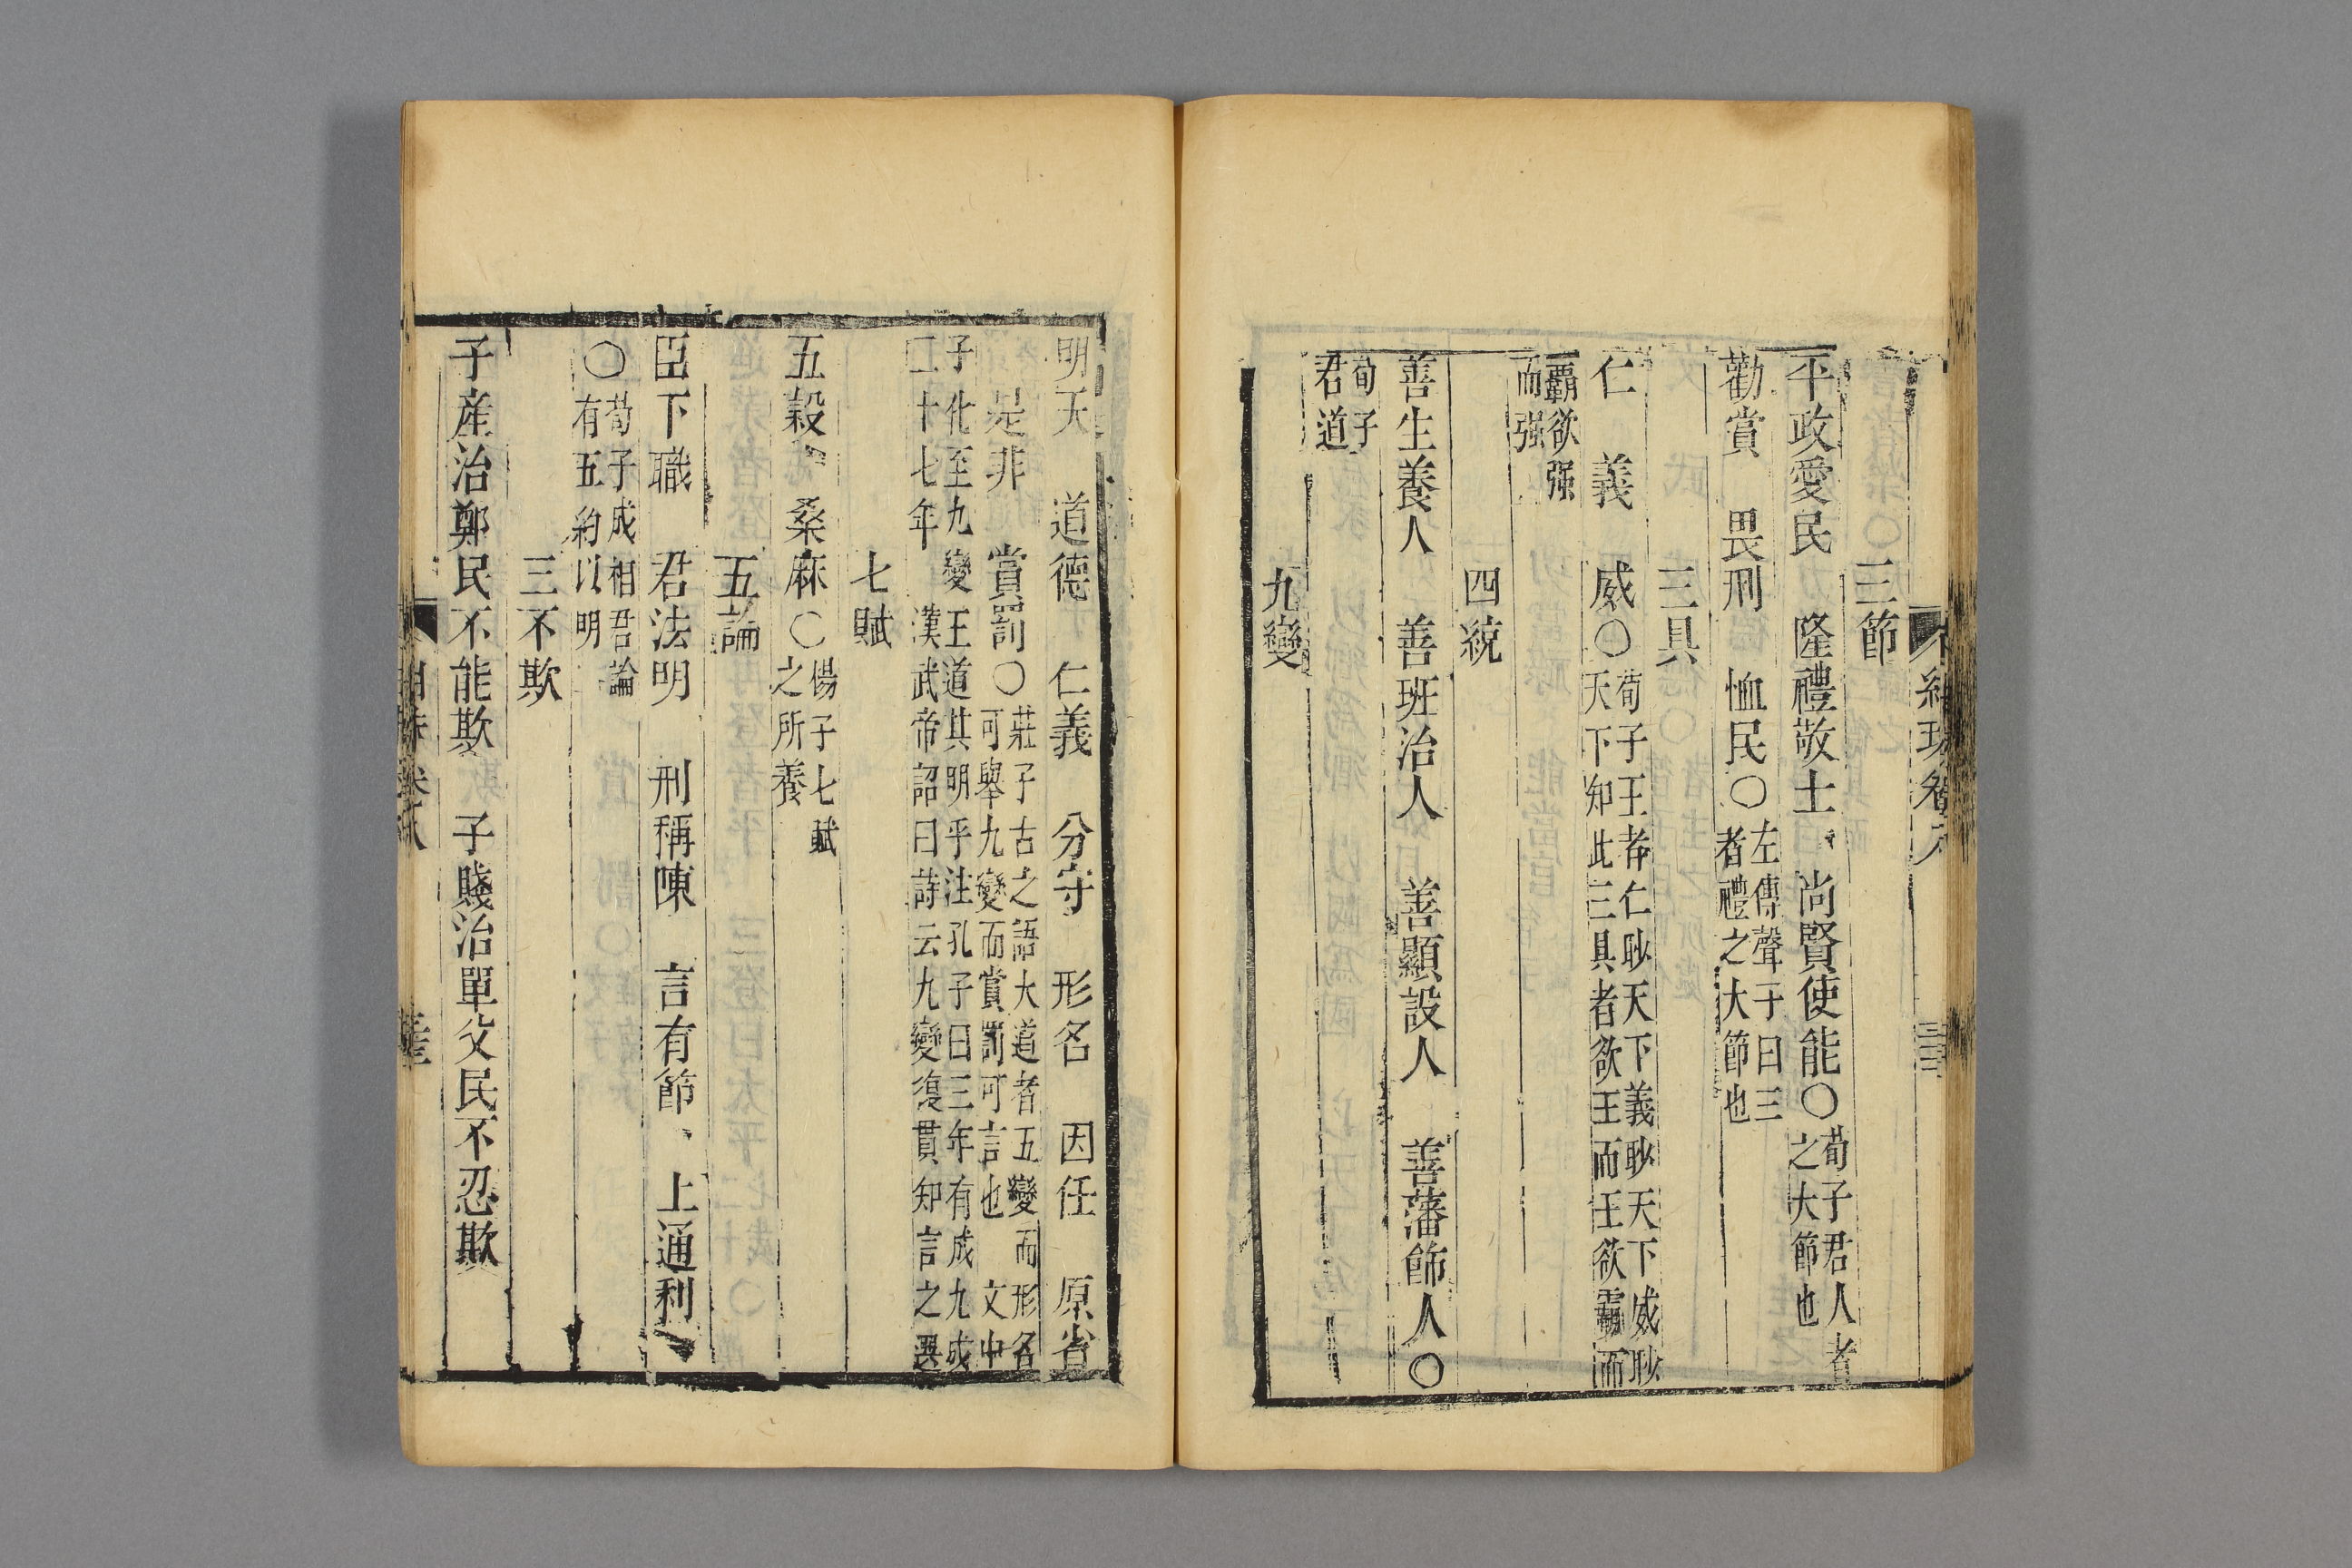 三節
平政愛民　隆禮敬士　尚賢使能〇荀子君人者
之大節也
勸賞　畏刑　恤民〇左傳聲子曰三
者禮之大節也
三具
仁　義　威〇荀子王者仁眇天下義眇天下威眇
天下知此三具者欲王而王欲霸而
霸欲强
而强
四統
善生養人　善班治人　善顯設人　善藩飾人〇
荀子
君道
九變
明天　道德　仁義　分守　形名　因任　原省
是非　賞罰〇莊子古之語大道者五變而形名
可舉九變而賞罰可言也　文中
子化至九變王道其明乎注孔子曰三年有成九成
二十七年　漢武帝詔曰詩云九變復貫知言之選
七賦
五穀　桑麻〇楊子七賦
之所養
五論
臣下職　君法明　刑稱陳　言有節　上通利
〇荀子成相君論
有五約以明
三不欺
子産治鄭民不能欺　子賤治單父民不忍欺